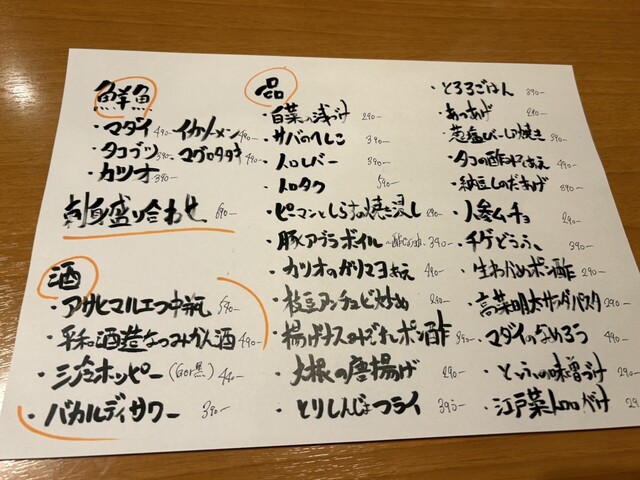 鮮魚
・マダイ 490- イカソーメン 490-
・タコブツ 390- ・マグロタタキ 490-
・カツオ 390-
刺身盛り合わせ 690-
酒
・アサヒマルエフ中瓶 590-
・平和酒造なつみかん酒 490-
・三冷ホッピー (白or黒) 440-
・バカルディサワー 390-
品
・白菜の浅づけ 290-
・サバのへしこ 390-
・トロレバー 390-
・トロタク 590-
・ピーマンとしらすの焼き浸し 290-
・豚アブラボイル 390-
・カツオのガリマヨあえ
・枝豆アンチョビ炒め 290-
・揚げナスのみぞれポン酢 390-
・大根の唐揚げ 290-
・とりしんじょフライ 390-
・とろろごはん 390-
・あつあげ 290-
・タコの酢みそあえ 490-
・納豆しのだあげ 390-
・人参ムチョ 290-
・チゲどうふ 390-
・生わかめポン酢 290-
・高菜明太サラダパスタ 290-
・マダイのなめろう 490-
・とうふの味噌づけ 290-
・江戸菜